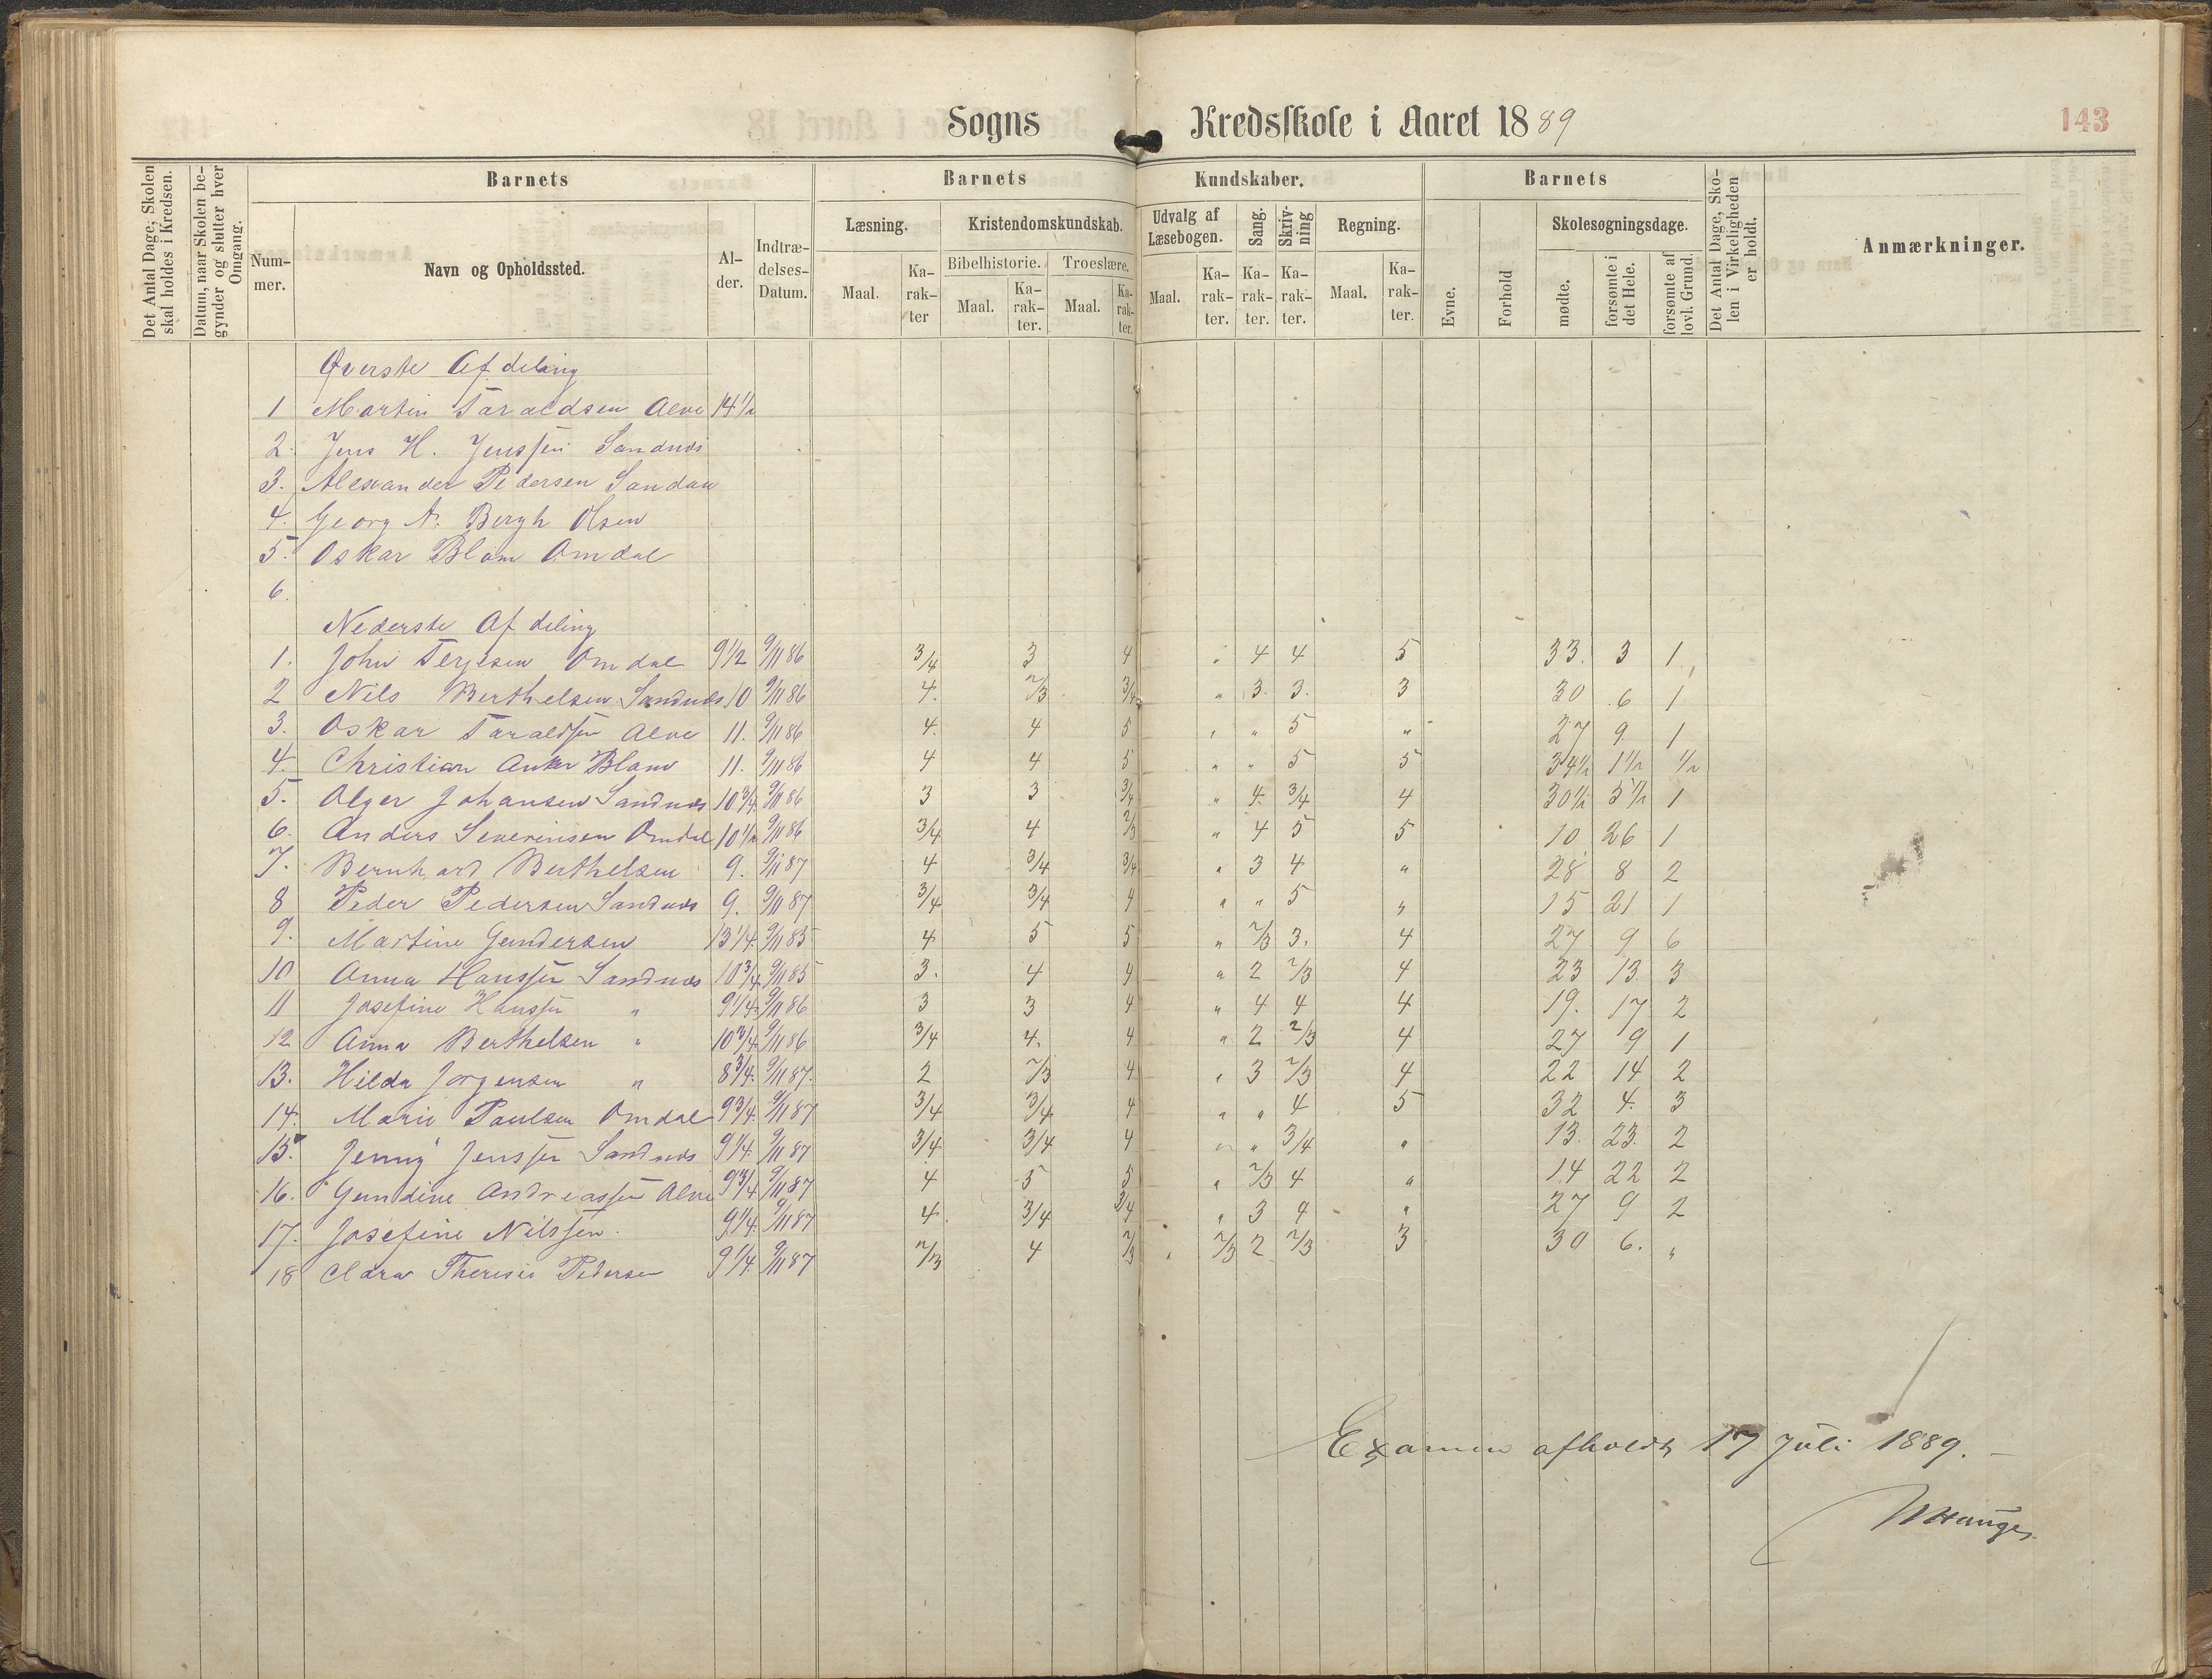 Sogns Kredsskole i Aaret 1889 143
Det Antal Dage, Skolen skal holdes i Kredsen.
Datum, naar Skolen begynder og slutter hver Omgang.
Barnets Barnets Kundskaber. Barnets
Det Antal Dage, Skolen i Virkeligheden er holdt.
Anmærkninger.
Nummer. Navn og Opholdssted. Alder. Indtrædelses-Datum.
Læsning. Kristendomskundskab. Udvalg af Læsebogen. Sang. Skrivning Regning. Evne. Forhold Skolesøgningsdage.
Bibelhistorie. Troeslære.
Maal. Karakter Maal. Karakter. Maal. Karakter. Maal. Karakter. Karakter. Karakter. Maal. Karakter. mødte. forsømte i det Hele. forsømte af lovl. Grund.
Øverste Afdeling
1 Martin Taraldsen Alve 14 1/2
2. Jens H. Jenssen Sandnes
3. Alexander Pedersen Sandnes
4. Georg A. Bergh Olsen
5. Oskar Blom Omdal
6.
Nederste Afdeling
1. John Terjesen Omdal 9 1/2 9/11 86 3/4 3 4 " 4 4 5 33. 3 1
2 Nils Berthelsen Sandnes 10 9/11 86 4. 2/3 3/4 " 3. 3. 3 30 6 1
3. Oskar Taraldsen Alve 11. 9/11 86 4. 4 5 " " 5 " 27 9. 1
4. Christian Anker Blom 11. 9/11 86 4 4 5 " " 5 5 34 1/2 1 1/2 1/2
5. Alger Johansen Sandnes 10 3/4 9/11 86 3 3 3/4 " 4. 3/4 4 30 1/2 5 1/2 1
6. Anders Severinsen Omdal 10 1/2 9/11 86 3/4 4 2/3 " 4 5 5 10 26 1
7. Bernhard Berthelsen 9. 9/11 87 4 3/4 3/4 " 3 4 " 28 8 2
8 Peder Pedersen Sandnes 9. 9/11 87 3/4 3/4 4 " " 5 " 15 21 1
9. Martine Gundersen 13 1/4. 9/11 85 4 5 5 " 2/3 3. 4 27 9 6
10 Anna Hanssen Sandnes 10 3/4 9/11 85 3. 4 4 " 2 2/3 4 23 13. 3
11 Josefine Hanssen " 9 1/4. 9/11 86 3 3 4 " 4 4 4 19. 17 2
12 Anna Berthelsen " 10 3/4 9/11 86 3/4 4. 4 " 2 2/3 4 27 9 1
13. Hilda Jørgensen " 8 3/4. 9/11 87. 2 2/3 4 " 3 2/3 4 22 14 2
14. Marie Paulsen Omdal 9 3/4. 9/11 87 3/4 3/4 4 " " 4 5 32 4. 3
15. Jenny Jenssen Sandnes 9 1/4. 9/11 87 3/4 3/4 4 " " 3/4 " 13. 23. 2
16. Gundine Andreassen Alve 9 3/4 9/11 87 4 5 5 " 2/3 4 " 14 22 2
17. Josefine Nilssen. 9 1/4. 9/11 87 4. 3/4 3/4 " 3 4 " 27 9 2
18 Clara Theresie Pedersen 9 1/4. 9/11 87 2/3 4 2/3 " 2/3 2 2/3 3 30 6. "
Examen afholdt 17 Juli 1889. –